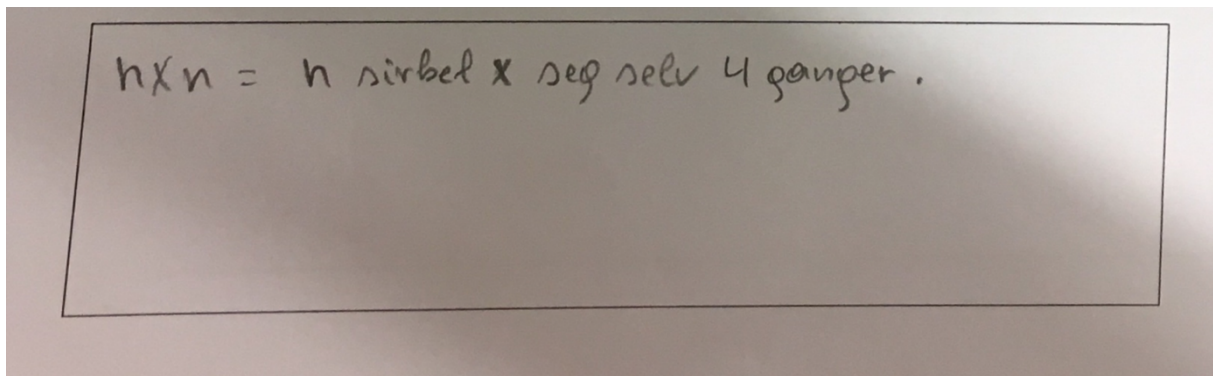 nxn = n sirbel x seg selv 4 ganger.